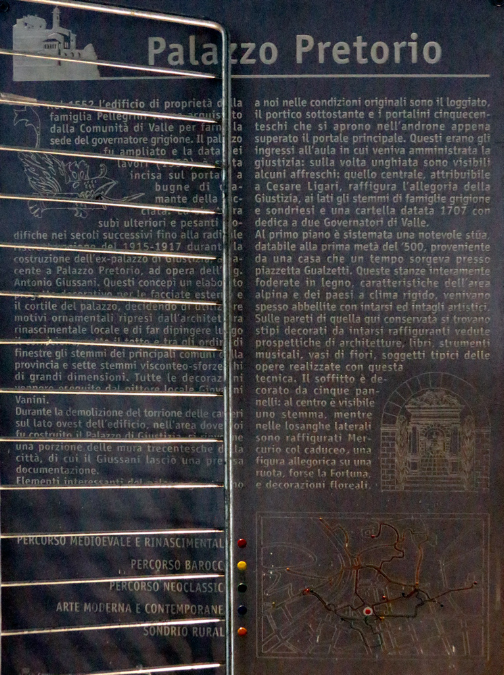 Palazzo Pretorio
1552 l'edificio di proprietà
famiglia Pellegrini
dalla Comunità di Valle per
sede del governatore grigione. Il
fu ampliato e la data
incisa sul
bugne di
mante della
subi ulteriori e pesanti
difiche nei secoli successivi fino alla
del 1915-1917 durante la
costruzione dell'ex-palazzo di Giustizia
cente a Palazzo Pretorio, ad opera dell'
Antonio Giussani. Questi concepì un
per le facciate esterne e
il cortile del palazzo, decidendo di
motivi ornamentali ripresi
rinascimentale locale e di far dipingere
il tetto e tra gli ordini
finestre gli stemmi dei principali comuni
provincia e sette stemmi visconteo-sforzeschi
di grandi dimensioni. Tutte le decorazioni
pittore locale
Vanini.
Durante la demolizione del torrione delle
sul lato ovest dell'edificio, nell'area dove
fu costruito il Palazzo di Giustizia
una porzione delle mura trecentesche
città, di cui il Giussani lasciò una
documentazione.
Elementi interessanti del
a noi nelle condizioni originali sono il loggiato,
il portico sottostante e i portalini cinquecen-
teschi che si aprono nell'androne appena
superato il portale principale. Questi erano gli
ingressi all'aula in cui veniva amministrata la
giustizia: sulla volta unghiata sono visibili
alcuni affreschi: quello centrale, attribuibile
a Cesare Ligari, raffigura l'allegoria della
Giustizia, ai lati gli stemmi di famiglie grigione
e sondriesi e una cartella datata 1707 con
dedica a due Governatori di Valle.
Al primo piano è sistemata una notevole stüa,
databile alla prima metà del '500, proveniente
da una casa che un tempo sorgeva presso
piazzetta Gualzetti. Queste stanze interamente
foderate in legno, caratteristiche dell'area
alpina e dei paesi a clima rigido, venivano
spesso abbellite con intarsi ed intagli artistici.
Sulle pareti di quella qui conservata si trovano
stipi decorati da intarsi raffiguranti vedute
prospettiche di architetture, libri, strumenti
musicali, vasi di fiori, soggetti tipici delle
opere realizzate con questa
tecnica. Il soffitto è de-
corato da cinque pan-
nelli: al centro è visibile
uno stemma, mentre
nelle losanghe laterali
sono raffigurati Mer-
curio col caduceo, una
figura allegorica su una
ruota, forse la Fortuna,
e decorazioni floreali.
PERCORSO MEDIOEVALE E RINASCIMENTAL
PERCORSO BAROCC
PERCORSO NEOCLASSIC
ARTE MODERNA E CONTEMPORANE
SONDRIO RURAL